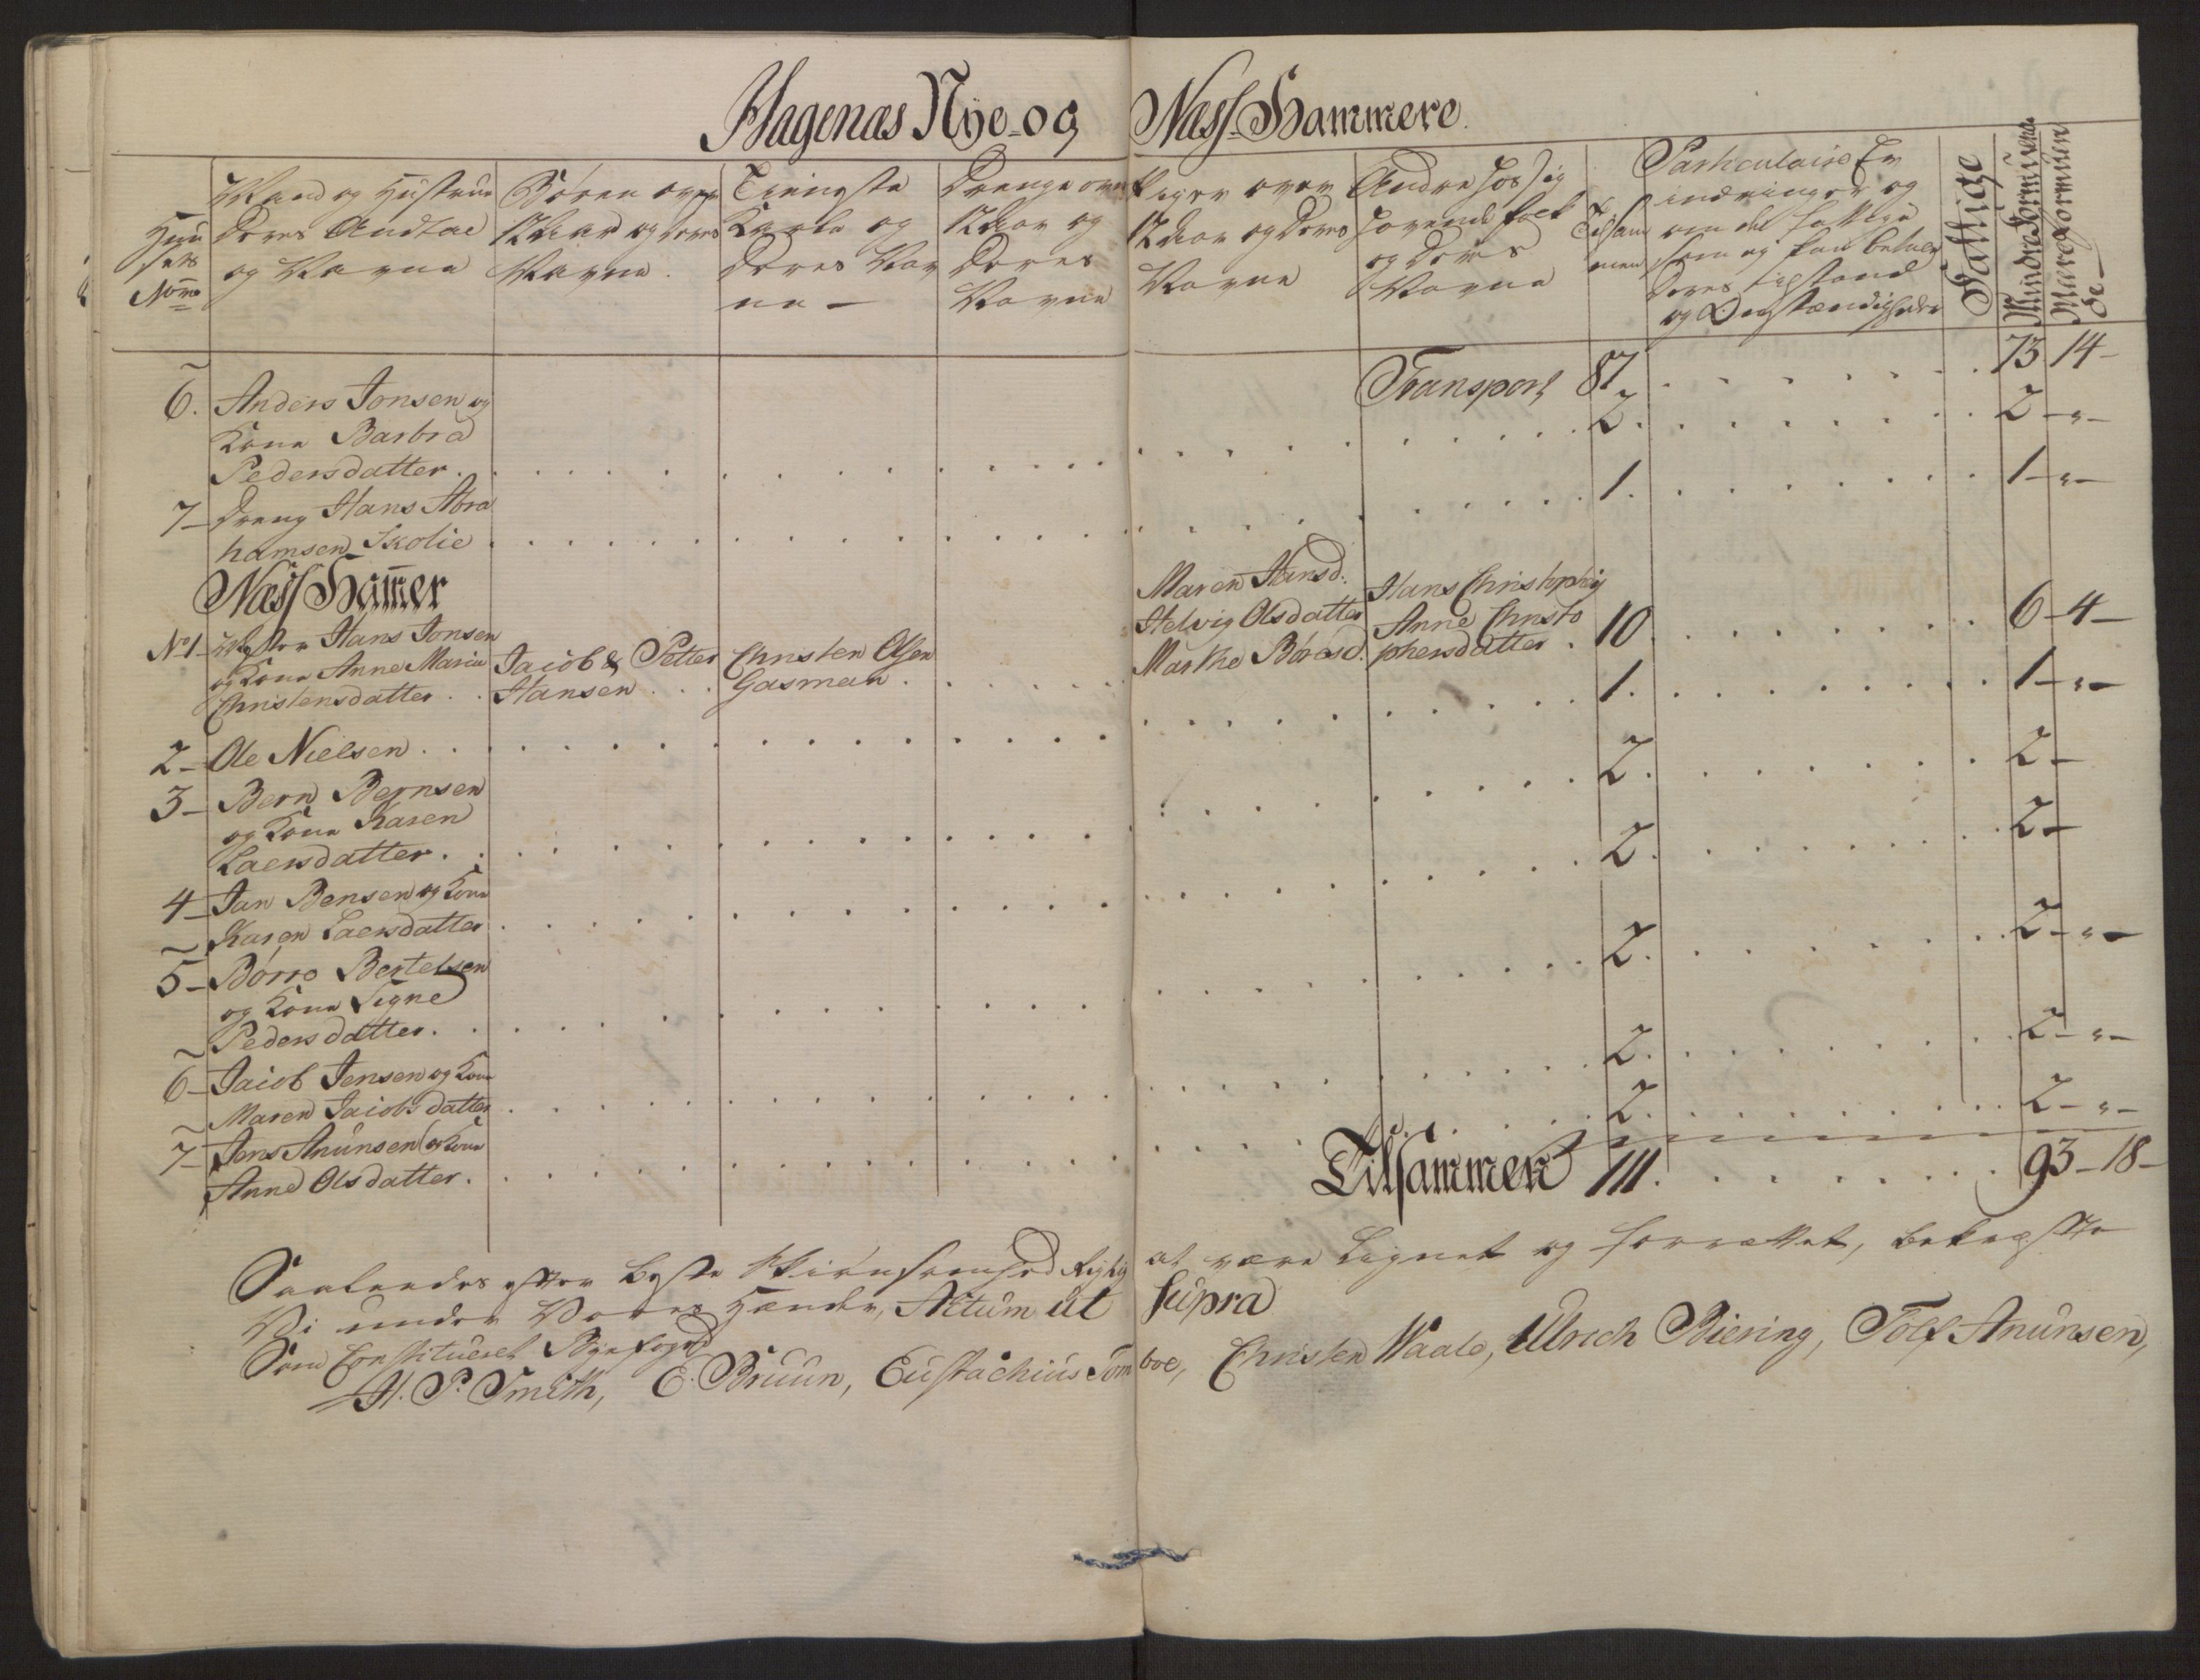 Hagenæs Nÿe og Næss Hammere
Huusets Nom̃
Mand og Hustrue Deres Andtal og Navne
Børen over 12 Aar og deres Navne.
Tienneste Karle og Deres Navne
Drenge over 12 Aar og Deres Navne
Piger over 12 Aar og Deres Navne
Andre hos sig havende folk og Deres Navne
Tilsammen
Particulaire Erindringer og om de fattige som ej kan betale Deres tilstand og Omstændigheder
Fattige
Mindreformuende
Meereformuende
Transport 87 73 14
6. Anders Jonsen og
Kone Barbra
Pedersdatter 2 2
7 Dreng Hans Abra
hamsen Skolie 1 1
Næss Ham̃er
No 1 Mester Hans Jonsen
og Kone Anne Maria
Christensdatter
Jacob & Petter
Hansen
Christen Olsen
Gasman
Maren Hansd.
Helvig Olsdatter
Marthe Børesd.
Hans Christophers
Anne Christo
phersdatter
10 6 4
2 Ole Nielsen 1 1
3 Bern Bernsen
og Kone Karen
Laersdatter 2 2
4 Jan Bensen og Kone
Karen Laersdatter 2 2
5 Børre Bertelsen
og Kone Signe
Pedersdatter 2 2
6 Jacob Jensen og Kone
Maren Jacobsdatter 2 2
7 Jens Anunsen og Kone
Anne Olsdatter 2 2
Tilsammen 111 93 18
Saaledes efter beste Skiønsomhed Rigtig at være Lignet og forrættet, bekræfte
Vi under Vores Hænder, Actum ut supra
Som Constitueret Byefogd
H. P. Smith, E. Bruun, Eustachius Tomboe, Christen Waale, Ulrich Biering, Tolf Anunsen,